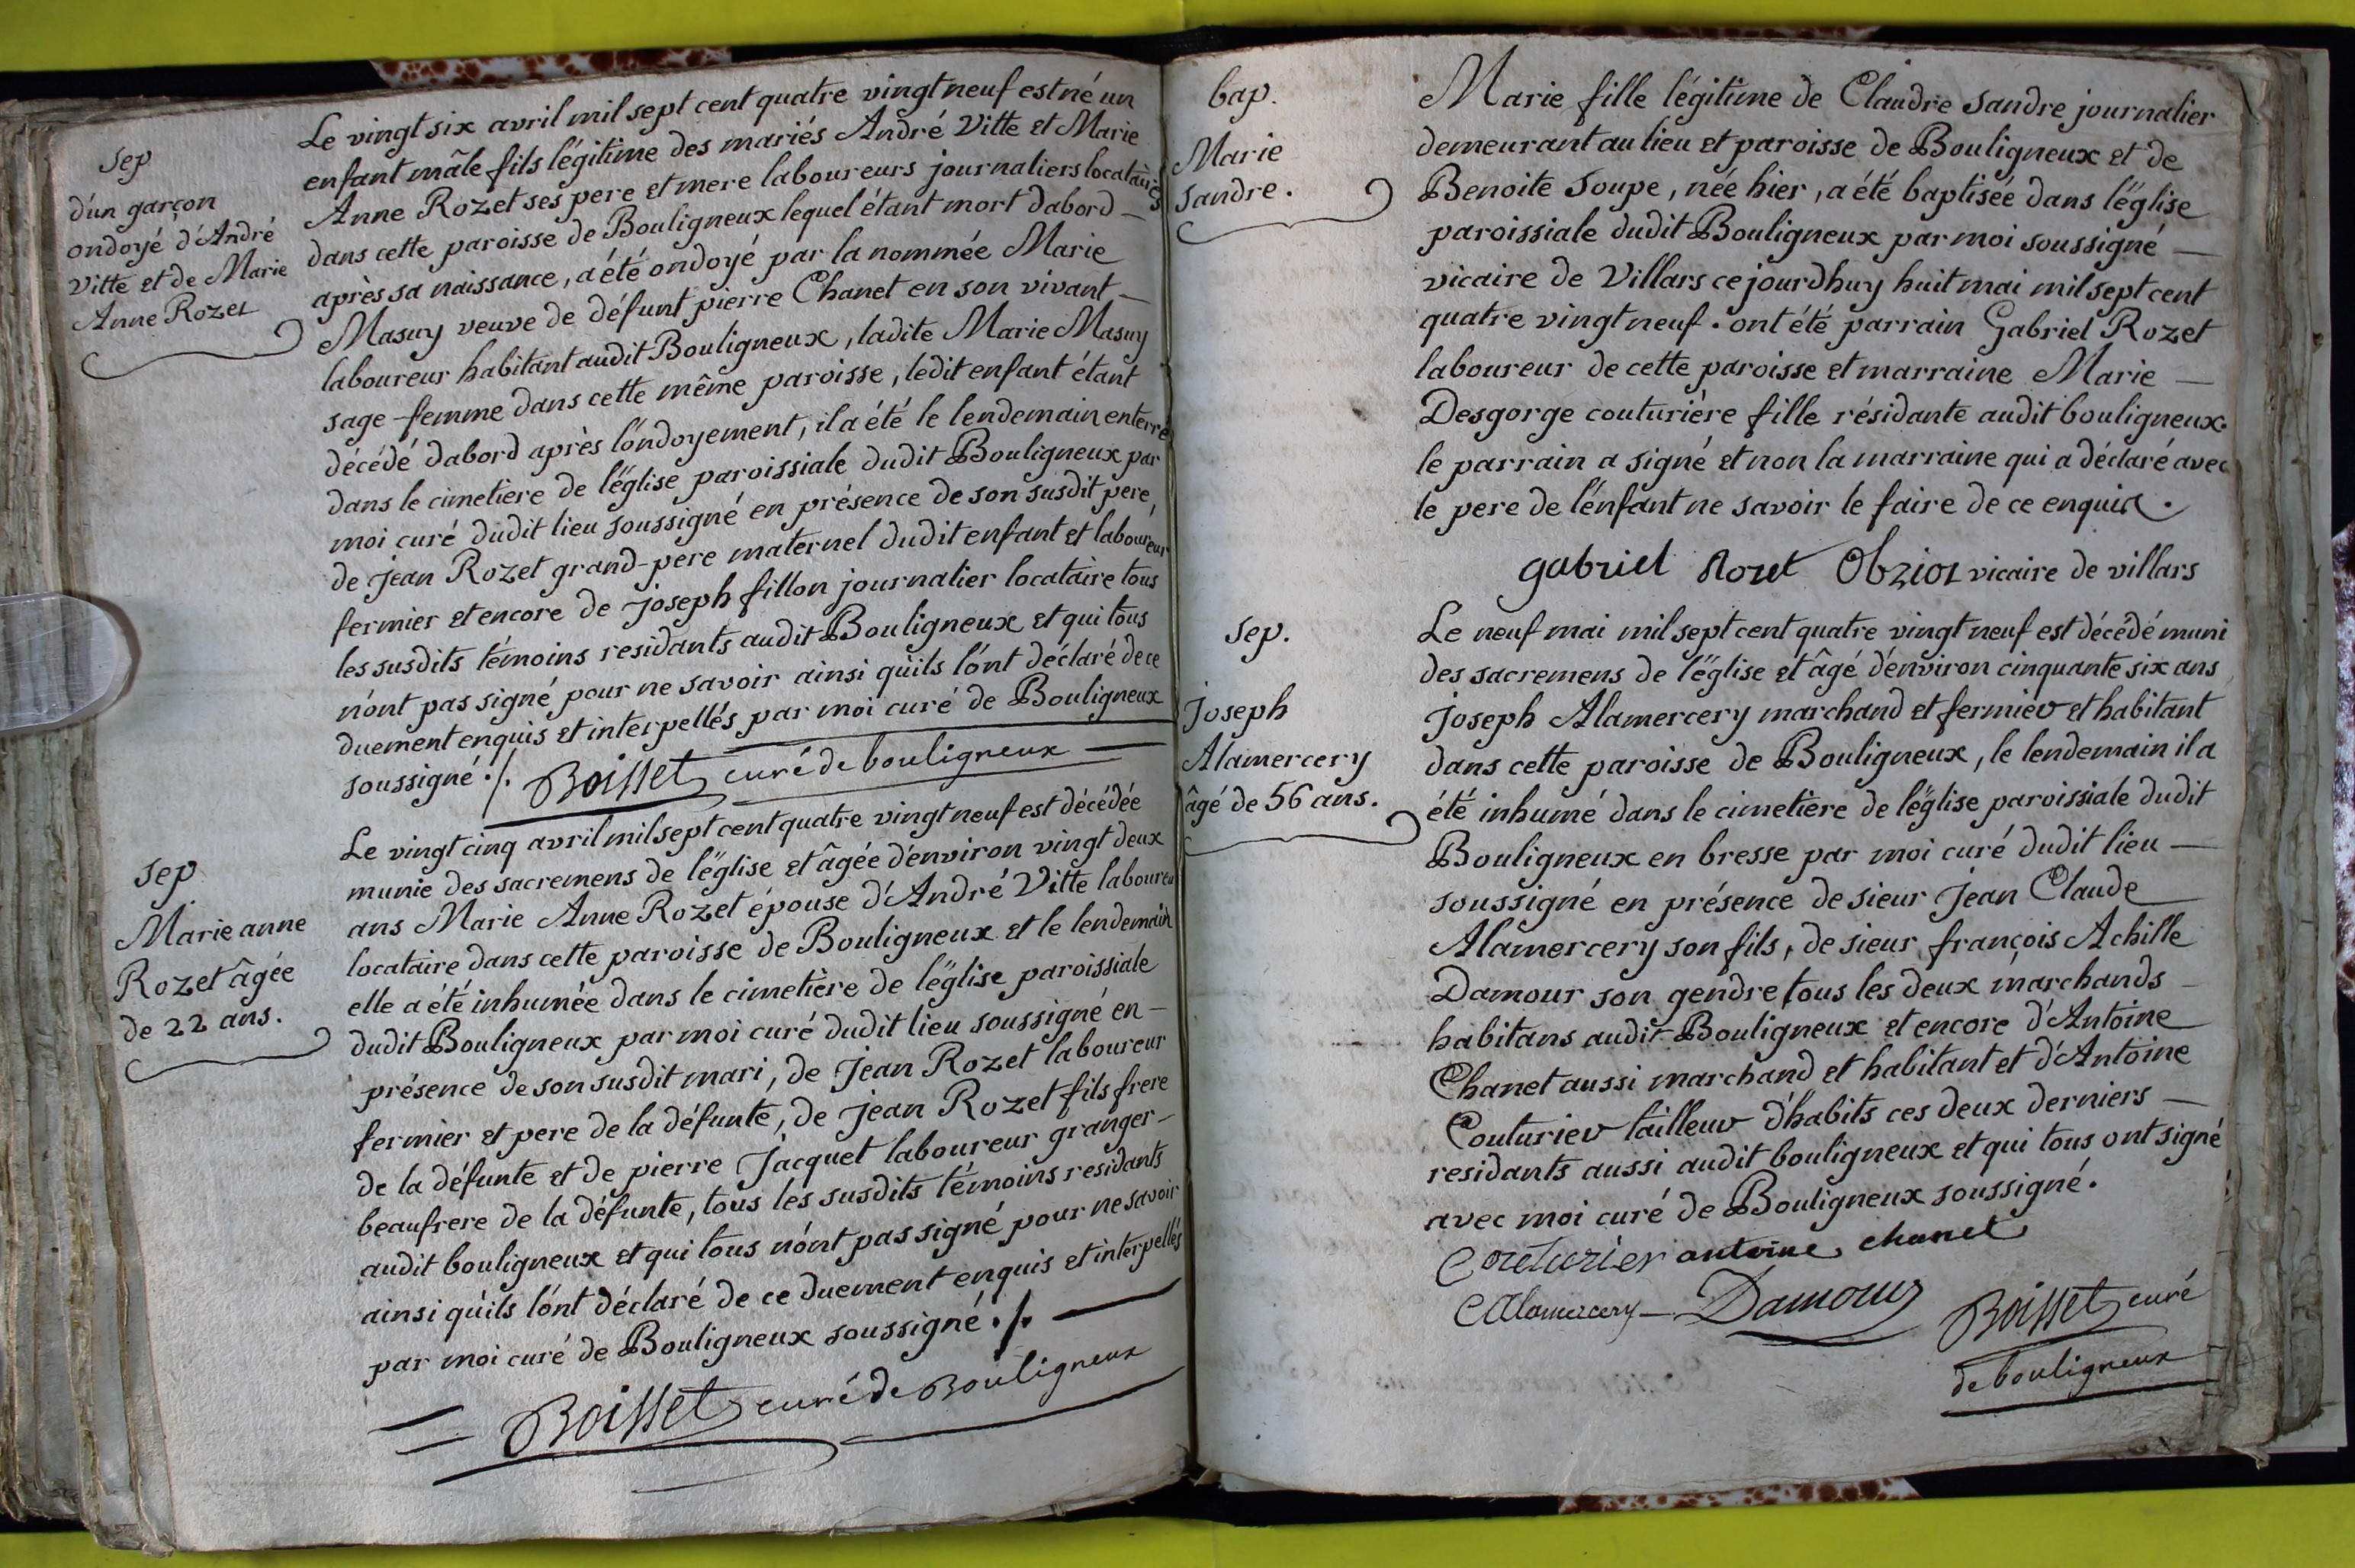 Sep
d'un garçon
ondoyé d'André
Vitte et de Marie
Anne Rozet
Le vingt six avril mil sept cent quatre vingt neuf est né un
enfant mâle fils légitime des mariés André Vitte et Marie
Anne Rozet ses pere et mere laboureurs journaliers locataires
dans cette paroisse de Bouligneux lequel étant mort dabord —
après sa naissance, a été ondoyé par la nommée Marie
Masuy veuve de défunt pierre Chanet en son vivant —
laboureur habitant audit Bouligneux, ladite Marie Masuy
sage-femme dans cette même paroisse, ledit enfant étant
décédé dabord après l'ondoyement, il a été le lendemain enterré
dans le cimetiere de l'église paroissiale dudit Bouligneux par
moi curé dudit lieu soussigné en présence de son susdit pere,
de jean Rozet grand-pere maternel dudit enfant et laboureur
fermier et encore de joseph fillon journalier locataire tous
les susdits témoins residants audit Bouligneux et qui tous
n'ont pas signé pour ne savoir ainsi qu'ils l'ont déclaré de ce
duement enquis et interpellés par moi curé de Bouligneux
soussigné ./. Boisset curé de bouligneux —
Sep
Marie anne
Rozet âgée
de 22 ans.
Le vingt cinq avril mil sept cent quatre vingt neuf est décédée
munie des sacremens de l'église et âgée d'environ vingt deux
ans Marie Anne Rozet épouse d'André Vitte laboureur
locataire dans cette paroisse de Bouligneux et le lendemain
elle a été inhumée dans le cimetière de l'église paroissiale
dudit Bouligneux par moi curé dudit lieu soussigné en —
présence de son susdit mari, de Jean Rozet laboureur
fermier et pere de la défunte, de jean Rozet fils frere
de la défunte et de pierre Jacquet laboureur granger —
beaufrere de la défunte, tous les susdits témoins residants
audit bouligneux et qui tous n'ont pas signé pour ne savoir
ainsi qu'ils l'ont déclaré de ce duement enquis et interpellés
par moi curé de Bouligneux soussigné ./. —
= Boisset curé de Bouligneux
bap.
Marie
sandre.
Marie fille légitime de Claudre sandre journalier
demeurant au lieu et paroisse de Bouligneux et de
Benoite Soupe, née hier, a été baptisée dans l'église
paroissiale dudit Bouligneux par moi soussigné —
vicaire de Villars ce jourdhuy huit mai mil sept cent
quatre vingt neuf. ont été parrain Gabriel Rozet
laboureur de cette paroisse et marraine Marie —
Desgorge couturière fille résidante audit bouligneux.
le parrain a signé et non la marraine qui a déclaré avec
le pere de l'enfant ne savoir le faire de ce enquis.
gabriel Rozet vicaire de villars
Sep.
Joseph
Alamercery
âgé de 56 ans.
Le neuf mai mil sept cent quatre vingt neuf est décédé muni
des sacremens de l'église et âgé d'environ cinquante six ans
joseph Alamercery marchand et fermier et habitant
dans cette paroisse de Bouligneux, le lendemain il a
été inhumé dans le cimetière de l'église paroissiale dudit
Bouligneux en bresse par moi curé dudit lieu —
soussigné en présence de sieur Jean Claude
Alamercery son fils, de sieur françois Achille
Damour son gendre tous les deux marchands —
habitans audit Bouligneux et encore d'Antoine
Chanet aussi marchand et habitant et d'Antoine
Couturier tailleur d'habits ces deux derniers —
residants aussi audit bouligneux et qui tous ont signé
avec moi curé de Bouligneux soussigné.
Couturier antoine chanet
Alamercery — Damour Boisset curé
de bouligneux